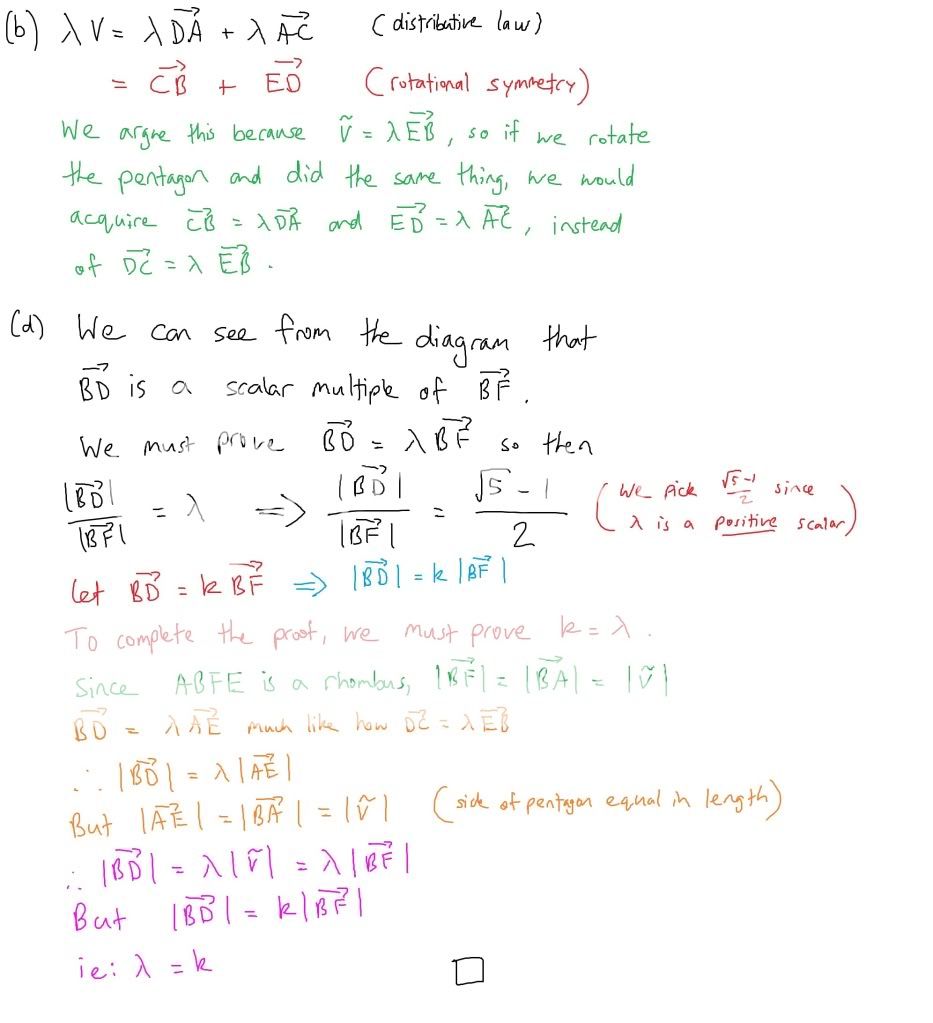 (b) λV = λ\overrightarrow{DA} + λ\overrightarrow{AC} (distributive law)
= \overrightarrow{CB} + \overrightarrow{ED} (rotational symmetry)
We argue this because ṽ = λ\overrightarrow{EB}, so if we rotate
the pentagon and did the same thing, we would
acquire \overrightarrow{CB} = λ\overrightarrow{DA} and \overrightarrow{ED} = λ\overrightarrow{AC}, instead
of \overrightarrow{DC} = λ\overrightarrow{EB}.
(d) We can see from the diagram that
\overrightarrow{BD} is a scalar multiple of \overrightarrow{BF}.
We must prove \overrightarrow{BD} = λ\overrightarrow{BF} so then
|\overrightarrow{BD}| / |\overrightarrow{BF}| = λ ⇒ |\overrightarrow{BD}| / |\overrightarrow{BF}| = (√5 - 1) / 2 (We pick (√5-1)/2 since
λ is a positive scalar)
Let \overrightarrow{BD} = k\overrightarrow{BF} ⇒ |\overrightarrow{BD}| = k|\overrightarrow{BF}|
To complete the proof, we must prove k = λ.
Since ABFE is a rhombus, |\overrightarrow{BF}| = |\overrightarrow{BA}| = |ṽ|
\overrightarrow{BD} = λ\overrightarrow{AE} much like how \overrightarrow{DC} = λ\overrightarrow{EB}
∴ |\overrightarrow{BD}| = λ|\overrightarrow{AE}|
But |\overrightarrow{AE}| = |\overrightarrow{BA}| = |ṽ| (side of pentagon equal in length)
∴ |\overrightarrow{BD}| = λ|ṽ| = λ|\overrightarrow{BF}|
But |\overrightarrow{BD}| = k|\overrightarrow{BF}|
ie: λ = k □